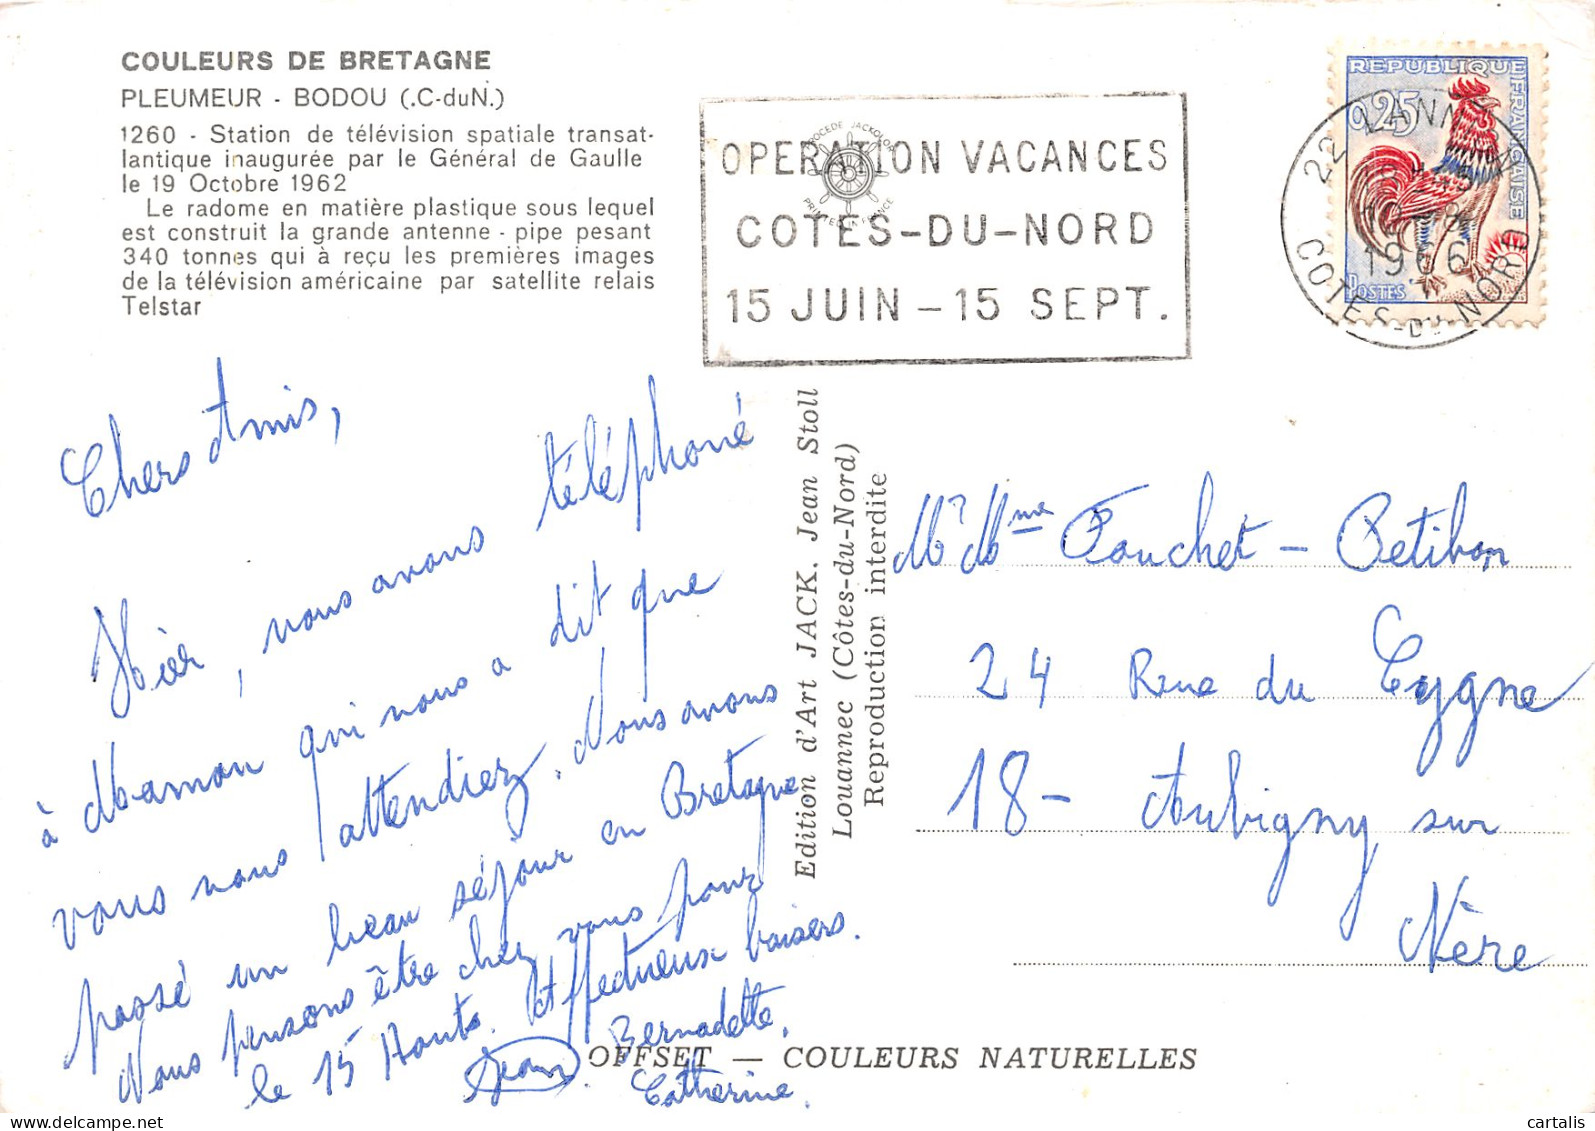 COULEURS DE BRETAGNE
PLEUMEUR - BODOU (.C-duN.)
1260 - Station de télévision spatiale transat-
lantique inaugurée par le Général de Gaulle
le 19 Octobre 1962
Le radome en matière plastique sous lequel
est construit la grande antenne - pipe pesant
340 tonnes qui à reçu les premières images
de la télévision américaine par satellite relais
Telstar
PROCEDE JACKOLOR
PRINTED IN FRANCE
OPERATION VACANCES
COTES-DU-NORD
15 JUIN - 15 SEPT.
REPUBLIQUE FRANÇAISE
0,25
POSTES
22 LANNION
1966
COTES-DU-NORD
Chers Amis,
Hier, nous avons téléphoné
à Maman qui nous a dit que
vous nous attendiez. Nous avons
passé un beau séjour en Bretagne
Nous pensons être chez vous pour
le 15 Août. Affectueux baisers.
Jean. Bernadette.
Catherine.
Edition d'Art JACK, Jean Stoll
Louannec (Côtes-du-Nord)
Reproduction interdite
Mr Mme Fouchet - Petibon
24 Rue du Cygne
18 - Aubigny sur
Nère
OFFSET — COULEURS NATURELLES
cartalis